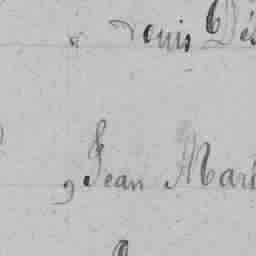 Denis Dés
Jean Mari